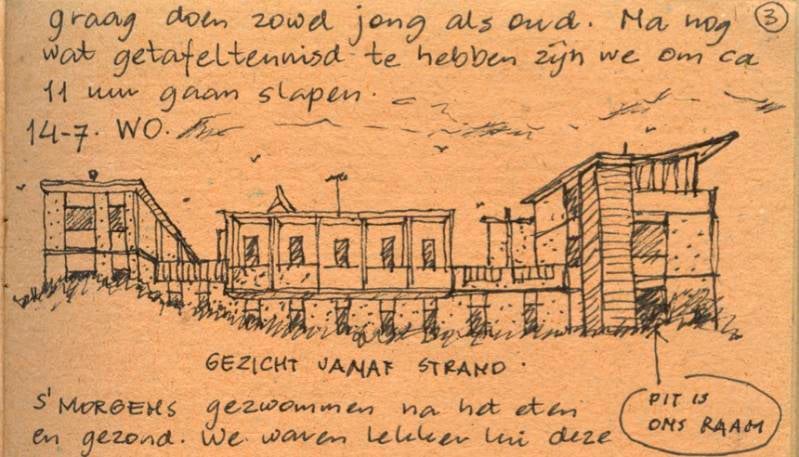 graag doen zowel jong als oud. Na nog
③
wat getafeltennisd te hebben zijn we om ca
11 uur gaan slapen.
14-7. WO.
GEZICHT VANAF STRAND.
S'MORGENS gezwommen na het eten
en gezond. We waren lekker in deze
DIT IS
ONS RAAM